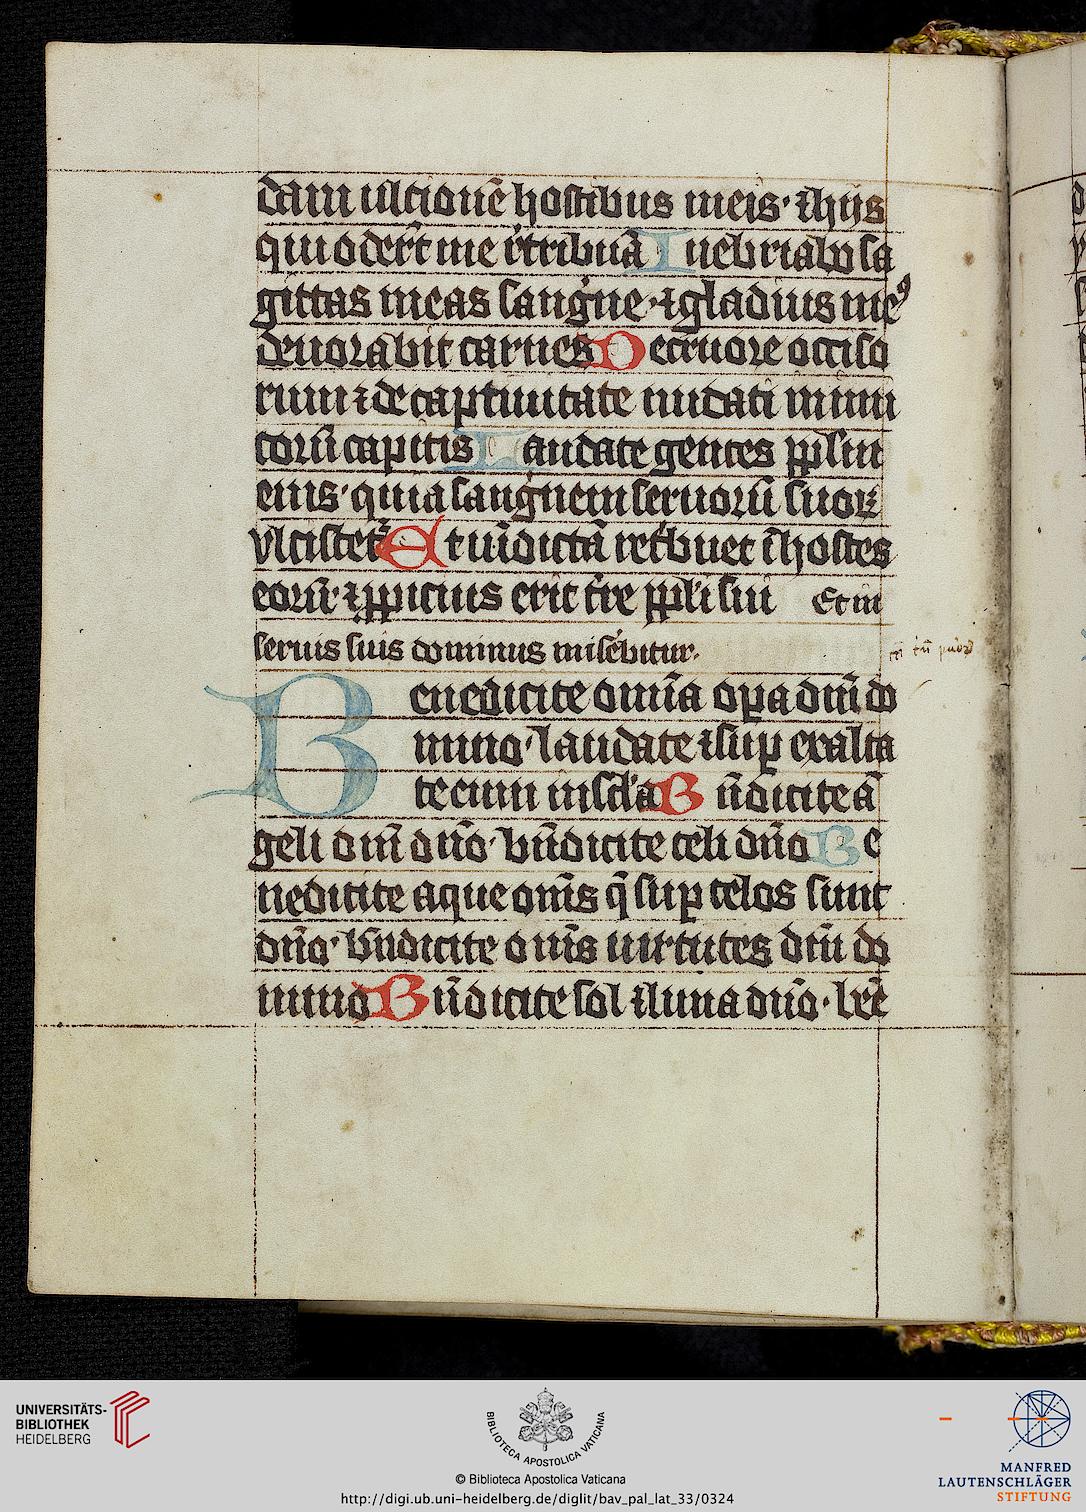 dam ulcionē hostibus meis· ⁊ hijs
qui oder̄t me r̄tribuā Inebriabo sa
gittas meas sangⁱne·⁊ gladius me⁹
deuorabit carnes De cruore occiso
rum ⁊ de captiuitate nudati inimi
corū capitis Laudate gentes ppl̄m
eius· quia sangⁱnem seruorū suoꝝ
vlciscetᷣ Et uīdictā ret̉buet ī hostes
eorū· ⁊ ꝓpicius erit tr̄e ppl̄i sui Et in
seruis suis dominus miser̄bitur.
Benedicite omīa oꝑa dnī do
mino· laudate ⁊ suꝑ exalta
te eum in scl̄a Bn̄dicite ā
geli dnī dn̄o· bn̄dicite celi dn̄o Be
nedicite aque om̄s q̄ suꝑ celos sunt
dn̄o· bn̄dicite om̄s uirtutes dnī do
mino Bn̄dicite sol ⁊ luna dn̄o· bn̄e
UNIVERSITÄTS-
BIBLIOTHEK
HEIDELBERG
BIBLIOTECA APOSTOLICA VATICANA
© Biblioteca Apostolica Vaticana
http://digi.ub.uni-heidelberg.de/diglit/bav_pal_lat_33/0324
MANFRED
LAUTENSCHLÄGER
STIFTUNG